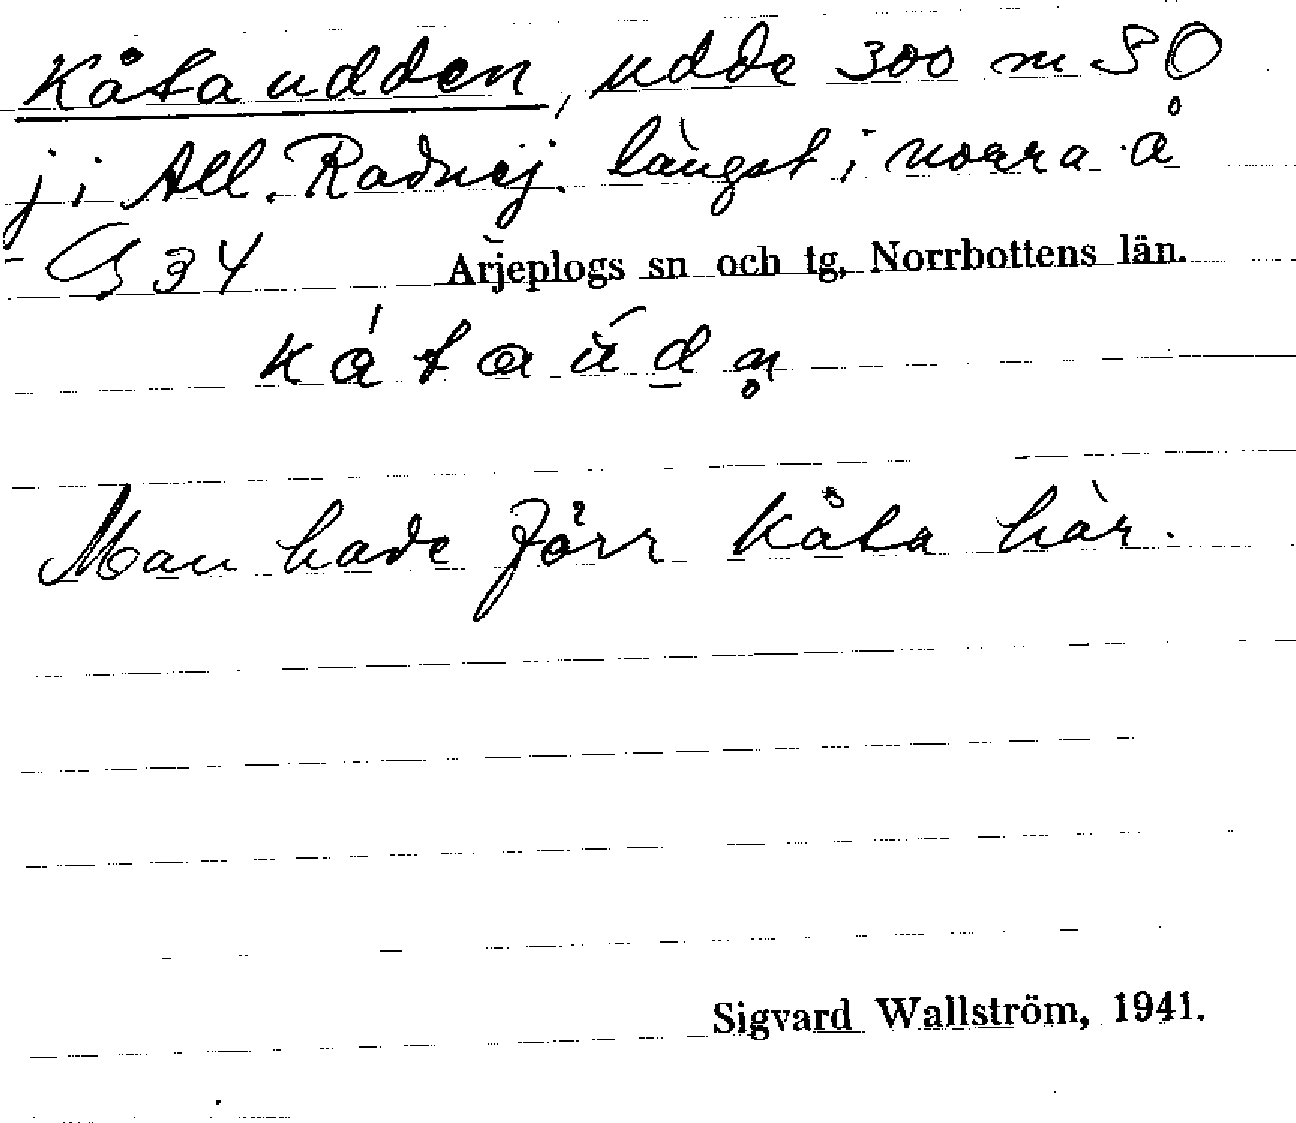 Kåtaudden, udde 300 m SO
i All. Radnej. längst i norra å
G 34 Arjeplogs sn och tg, Norrbottens län.
Man hade förr kåta här.
Sigvard Wallström, 1941.